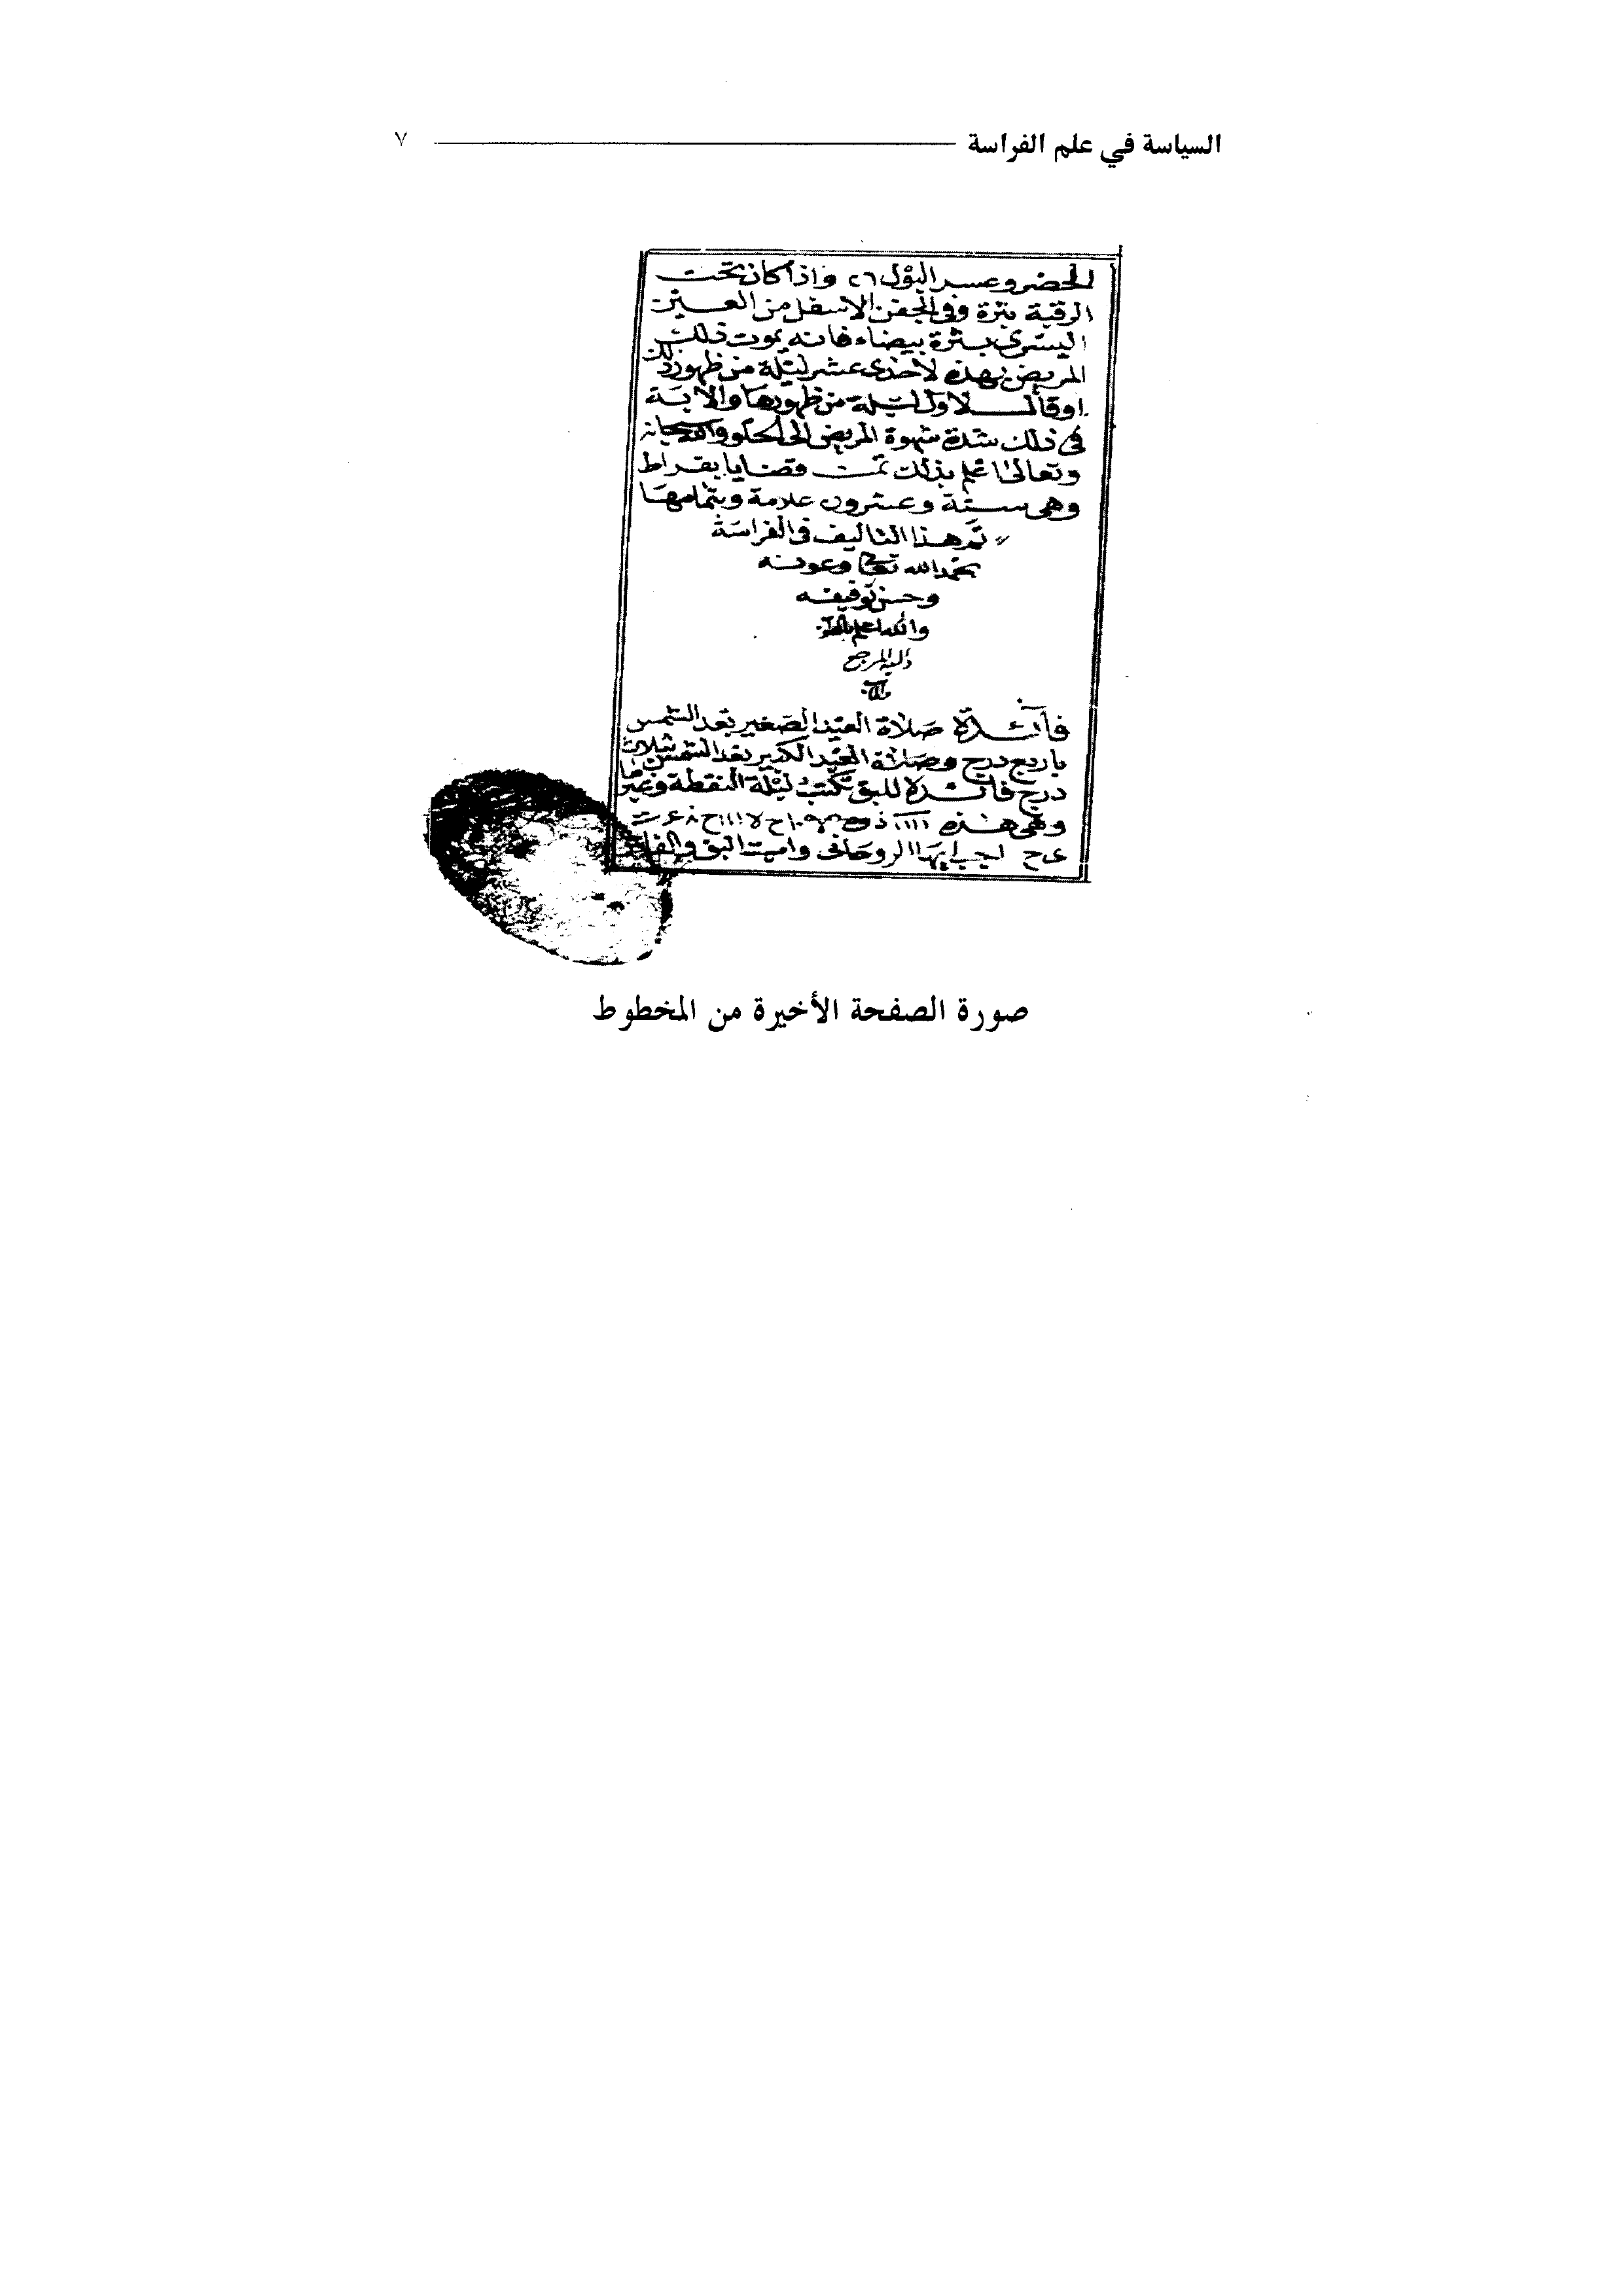 السياسة في علم الفراسة ٧
الحضر وعسر البول ٢٦ واذا كان تحت
الرقبة بثرة وفى الجفن الاسفل من العين
اليسرى بثرة بيضاء فانه يموت ذلك
المريض بهذه لاحدى عشر ليلة من ظهور ذلك
او قال لاول ليلة من ظهورها والاية
فى ذلك شدة شهوة المريض الى الحلو والله سبحانه
وتعالى اعلم بذلك تمت قضايا بقراط
وهى ستة وعشرون علامة وبتمامها
تم هذا التاليف فى الفراسة
بحمد الله تعالى وعونه
وحسن توفيقه
والله اعلم
واليه المرجع
فائدة صلاة العيد الصغير بعد الشمس
باربع درج وصلاة العيد الكبير بعد الشمس بثلاث
درج فائدة للبق تكتب ليلة النقطة وغيرها
وهى هذه
اجب ايها الروحانى واميت البق
صورة الصفحة الأخيرة من المخطوط